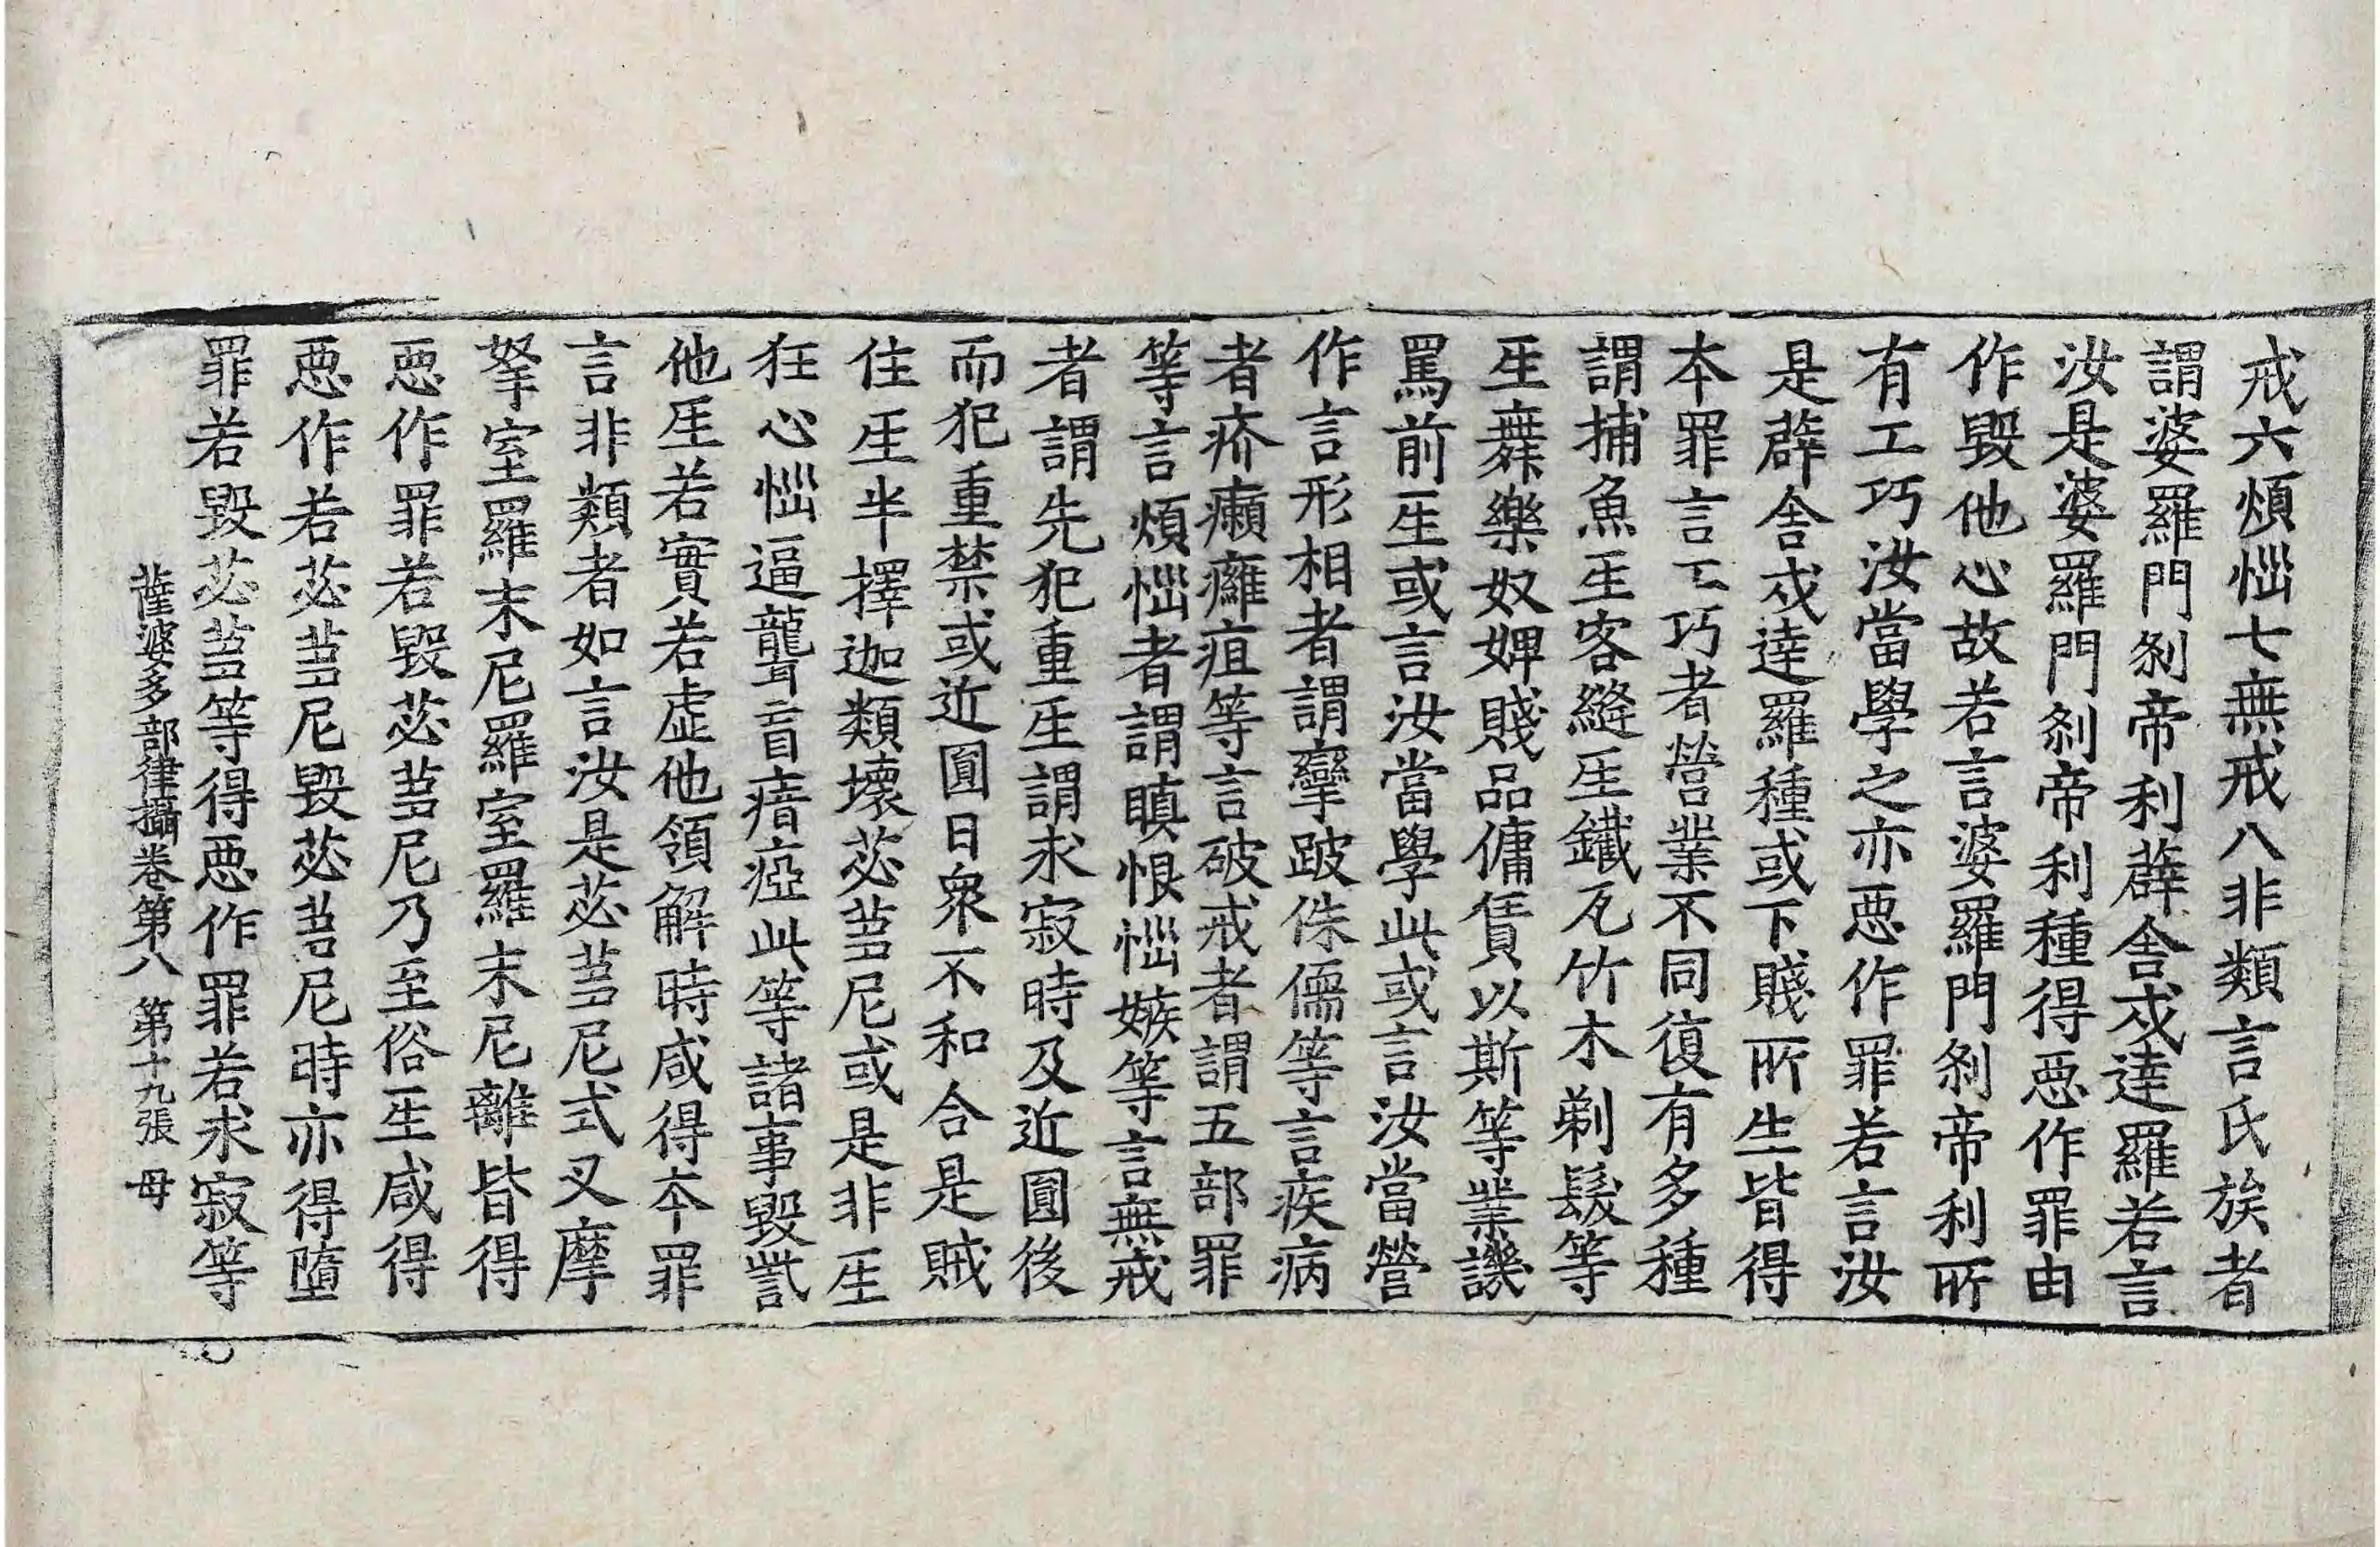 戒六煩惱七無戒八非類言氏族者
謂婆羅門剎帝利薜舍戍達羅若言
汝是婆羅門剎帝利種得惡作罪由
作毀他心故若言婆羅門剎帝利所
有工巧汝當學之亦惡作罪若言汝
是薜舍戍達羅種或下賤所生皆得
本罪言工巧者營業不同復有多種
謂捕魚生客縫生鐵瓦竹木剃髮等
生舞樂奴婢賤品傭賃以斯等業譏
罵前生或言汝當學此或言汝當營
作言形相者謂攣跛侏儒等言疾病
者疥癩癰疽等言破戒者謂五部罪
等言煩惱者謂瞋恨惱嫉等言無戒
者謂先犯重生謂求寂時及近圓後
而犯重禁或近圓日眾不和合是賊
住生半擇迦類壞苾芻尼或是非生
狂心惱逼聾盲瘖瘂此等諸事毀訾
他生若實若虛他領解時咸得本罪
言非類者如言汝是苾芻尼式叉摩
拏室羅末尼羅室羅末尼離皆得
惡作罪若毀苾芻尼乃至俗生咸得
惡作若苾芻尼毀苾芻尼時亦得墮
罪若毀苾芻等得惡作罪若求寂等
薩婆多部律攝卷第八 第十九張 母